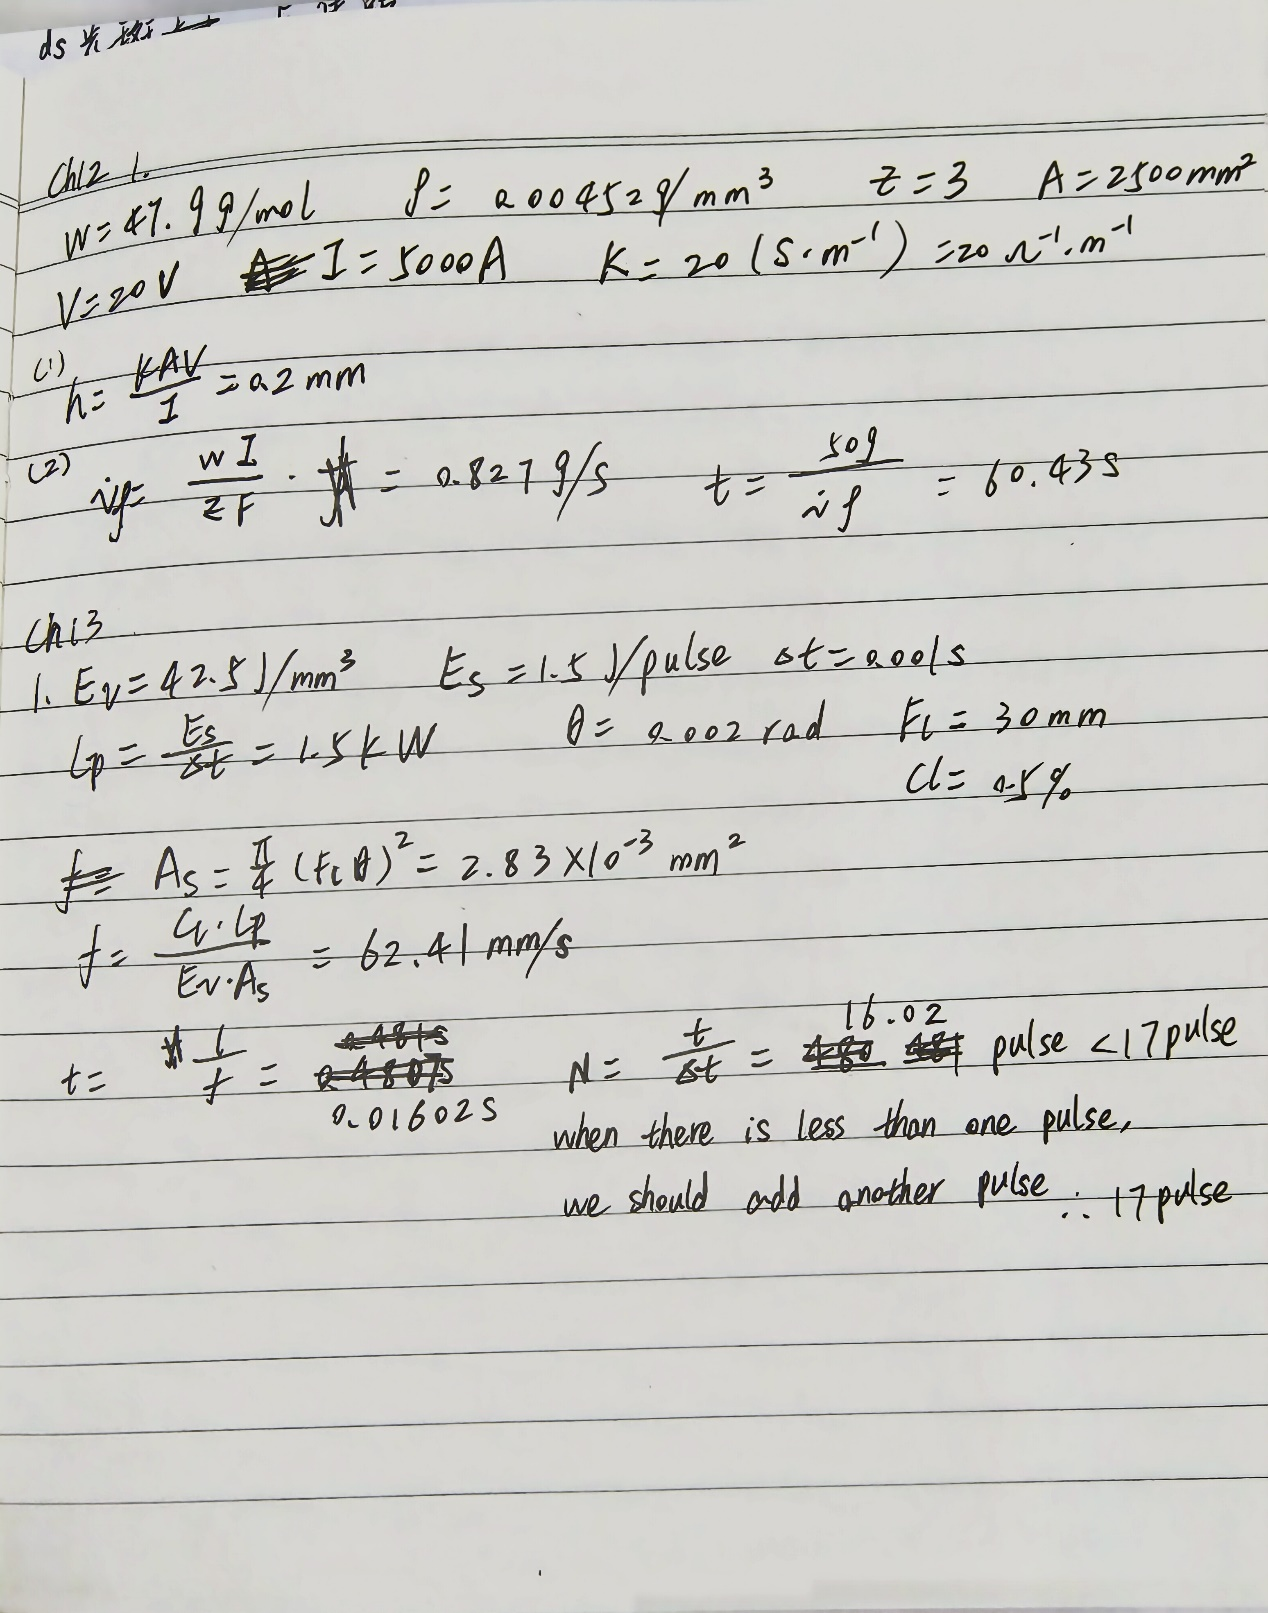 ds
Ch12 1.
W=47.9g/mol ρ= 0.00452g/mm³ z=3 A=2500mm²
V=20V I=5000A K=20(S·m⁻¹)=20Ω⁻¹·m⁻¹
(1)
h= KAV/I =0.2mm
(2) v̇ρ= WI/ZF · = 0.827g/s t= 50g/v̇ρ = 60.43s
Ch13
1. Ev=42.5J/mm³ Es=1.5J/pulse Δt=0.001s
Lp= Es/Δt =1.5kW θ= 0.002rad FL= 30mm
Cl= 0.5%
As= π/4 (FLθ)²=2.83×10⁻³ mm²
f= Cl·Lp/Ev·As = 62.41mm/s
t= 1/f = 0.01602s N= t/Δt = 16.02 pulse <17pulse
when there is less than one pulse,
we should add another pulse ∴ 17pulse